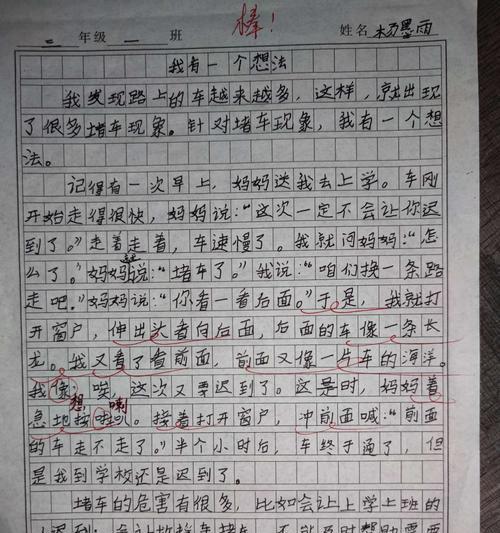 棒！
三 年级 一 班 姓名 杨墨雨
我有一个想法
我发现路上的车越来越多，这样，就出现
了很多堵车现象。针对堵车现象，我有一个想
法。
记得有一次早上，妈妈送我去上学。车刚
开始走得很快，妈妈说：“这次一定不会让你迟
到了。”走着走着，车速慢了。我就问妈妈：“怎
么了。”妈妈说：“堵车了。”我说：“咱们换一条路
走吧。”妈妈说：“你看一看后面。”于是，我就打
开窗户，伸出头看向后面，后面的车像一条长
龙。我又看了看前面，前面又像一片车的海洋。
我像：唉，这次又要迟到了。这是时，妈妈着
想 喇
急地按啦叭。接着打开窗户，冲前面喊：“前面
的车走不走了。”半个小时后，车终于通了，但
是我到学校还是迟到了。
堵车的危害有很多，比如会让上学上班的